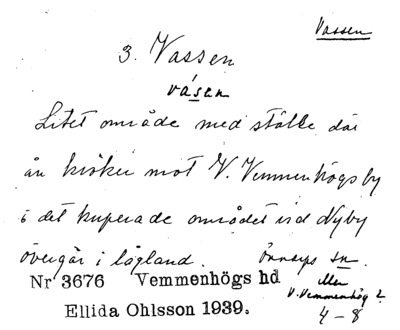 Vassen
3. Vassen
vásen
Litet område med ställe där
ån kröker mot V. Vemmenhögs by
i det kuperade området vid Nyby
övergår i lågland. Önnarps sn.
eller
V. Vemmenhög?
4-8
Nr 3676 Vemmenhögs hd
Ellida Ohlsson 1939.